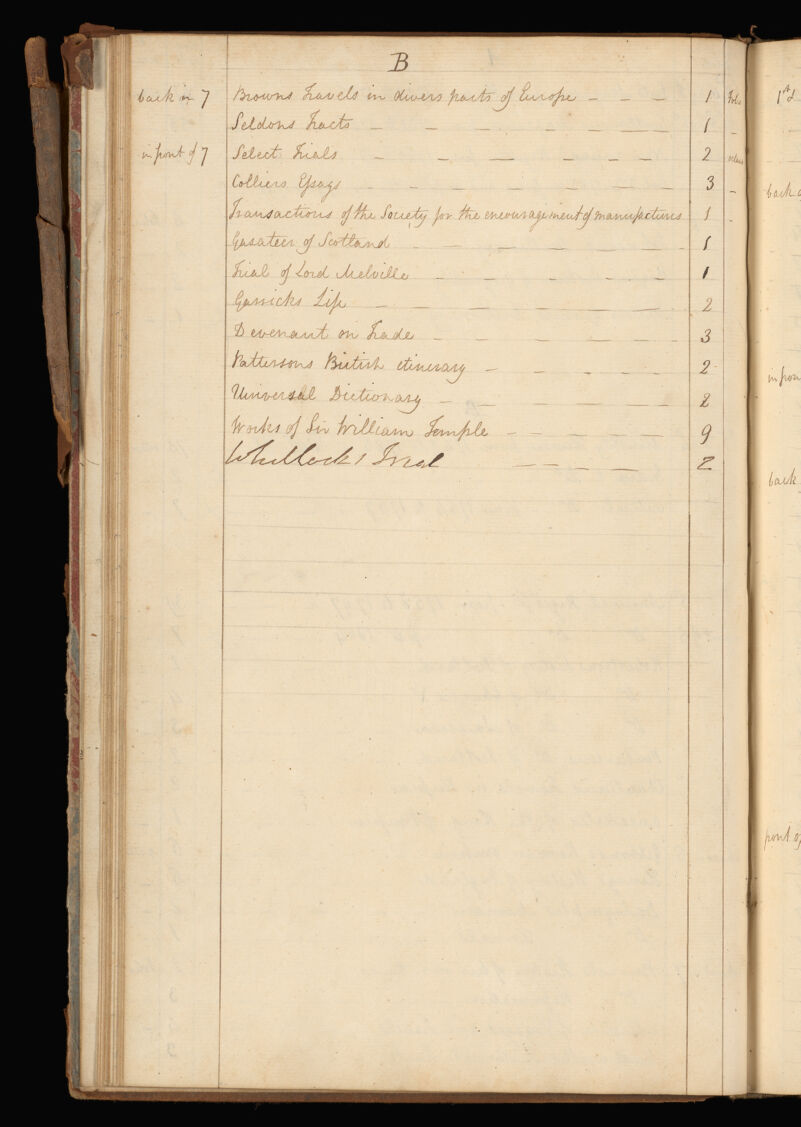 B
back in 7 Browns Travels in divers parts of Europe - - - 1 Folio
Seldons Tracts - - - - - - - 1 -
in front of 7 Select Trials - - - - - - 2
Colliers Essays - - - - - - - 3 -
Transactions of the Society for the encouragement of manufactures 1 -
Gasateer of Scotland - - - - - - - 1
Trial of Lord Melville - - - - - - 1
Garricks Life - - - - - - - 2
Devenant on Trade - - - - - - 3
Pattersons British itinerary - - - - - 2
Universal Dictionary - - - - - 2
Works of Sir William Temple - - - - - 9
Whitlocks Trial - - - - 2
1st
back
in fron
back
front of